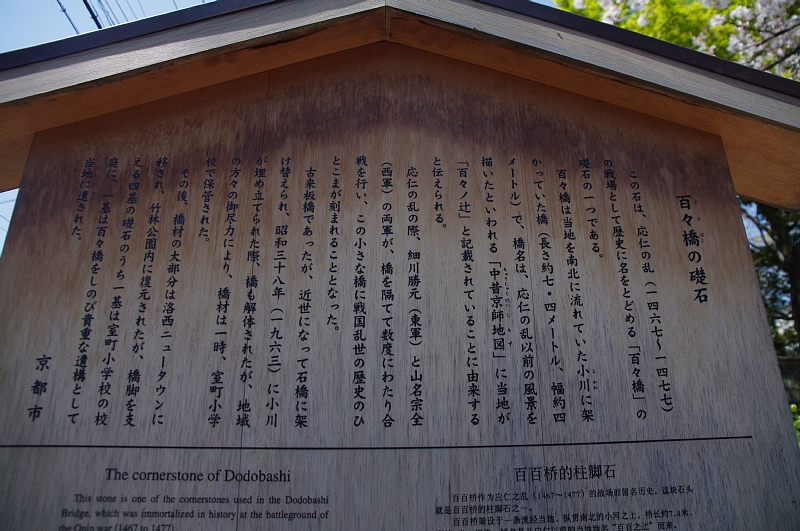 百々橋の礎石
この石は、応仁の乱（一四六七～一四七七）
の戦場として歴史に名をとどめる「百々橋」の
礎石の一つである。
百々橋は当地を南北に流れていた小川に架
かっていた橋（長さ約七・四メートル、幅約四
メートル）で、橋名は、応仁の乱以前の風景を
描いたといわれる「中昔京師地図」に当地が
「百々ノ辻」と記載されていることに由来する
と伝えられる。
応仁の乱の際、細川勝元（東軍）と山名宗全
（西軍）の両軍が、橋を隔てて数度にわたり合
戦を行い、この小さな橋に戦国乱世の歴史のひ
とこまが刻まれることとなった。
古来板橋であったが、近世になって石橋に架
け替えられ、昭和三十八年（一九六三）に小川
が埋め立てられた際、橋も解体されたが、地域
の方々の御尽力により、橋材は一時、室町小学
校で保管された。
その後、橋材の大部分は洛西ニュータウンに
移され、竹林公園内に復元されたが、橋脚を支
える四基の礎石のうち一基は室町小学校の校
庭に、一基は百々橋をしのび貴重な遺構として
当地に遺された。
京都市
The cornerstone of Dodobashi
This stone is one of the cornerstones used in the Dodobashi
Bridge, which was immortalized in history at the battleground of
the Onin war (1467 to 1477).
百百桥的柱脚石
百百桥作为应仁之乱（1467～1477）的战场而留名历史，这块石头
就是百百桥的柱脚石之一。
百百桥架设于一条流经当地、纵贯南北的小河之上，桥长约7.4米，